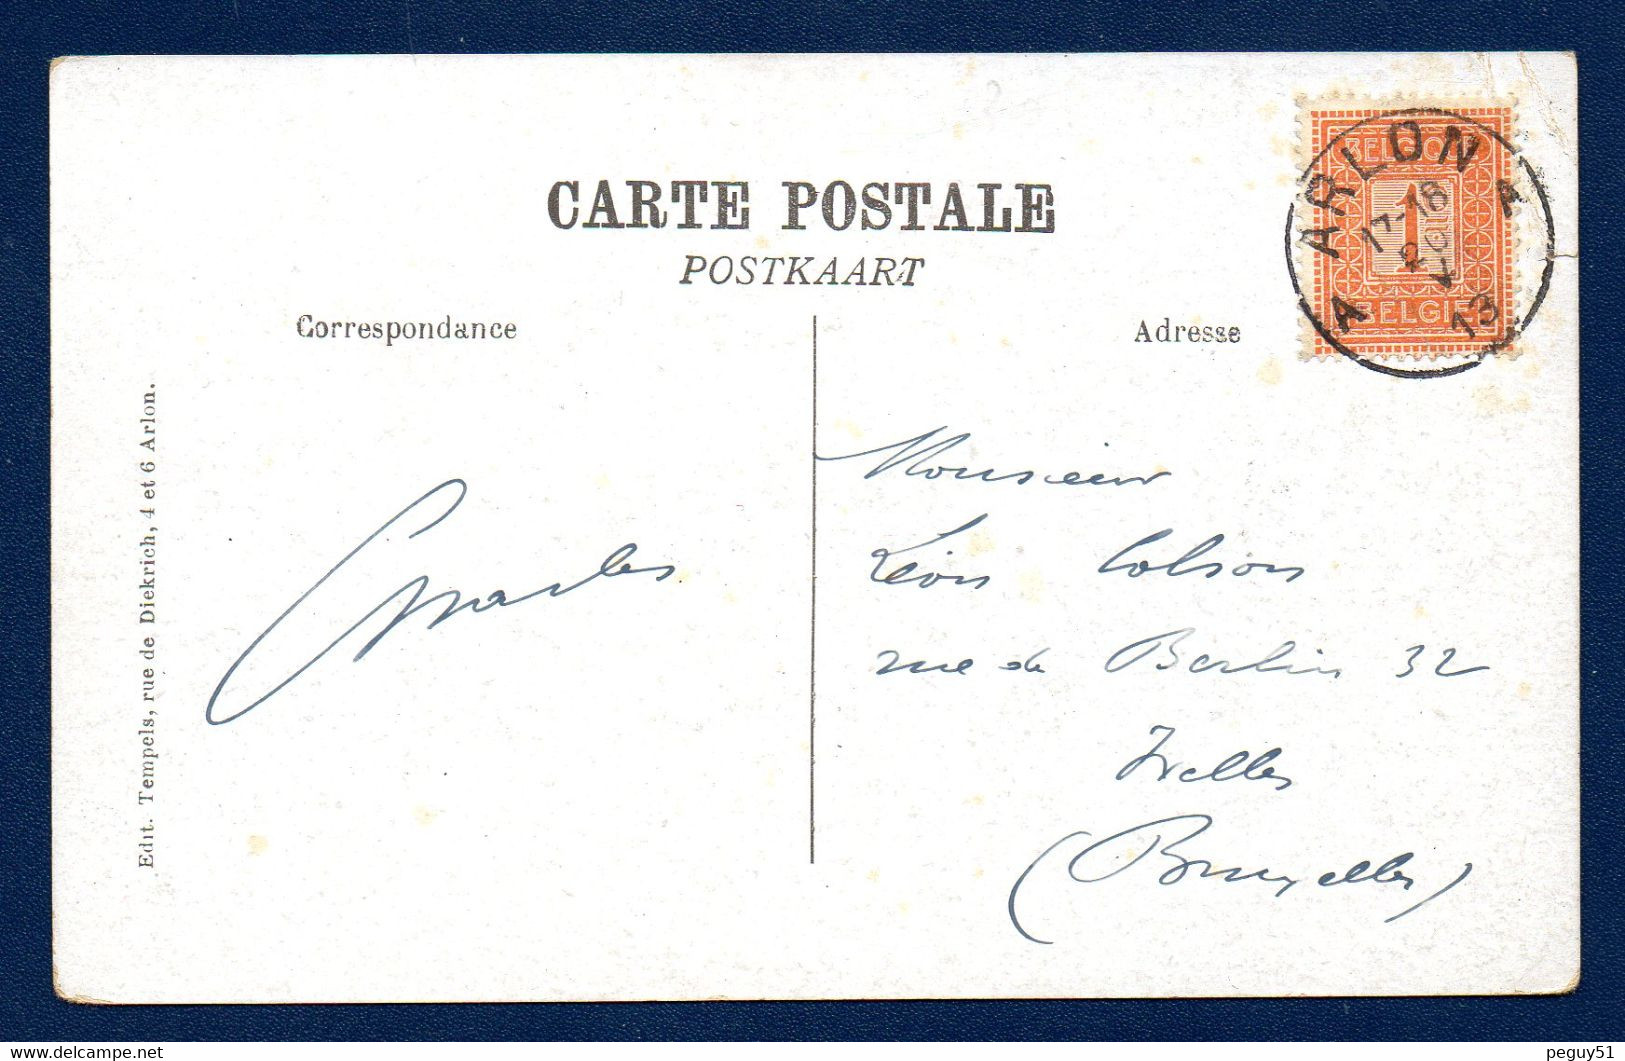 CARTE POSTALE
POSTKAART
Correspondance
Adresse
BELGIQUE
1
BELGIE
ARLON
A A
17-18
20
V
13
Edit. Tempels, rue de Diekrich, 4 et 6 Arlon.
Charles
Monsieur
Léon Colson
rue de Berlin 32
Ixelles
(Bruxelles)
delcampe.net
peguy51